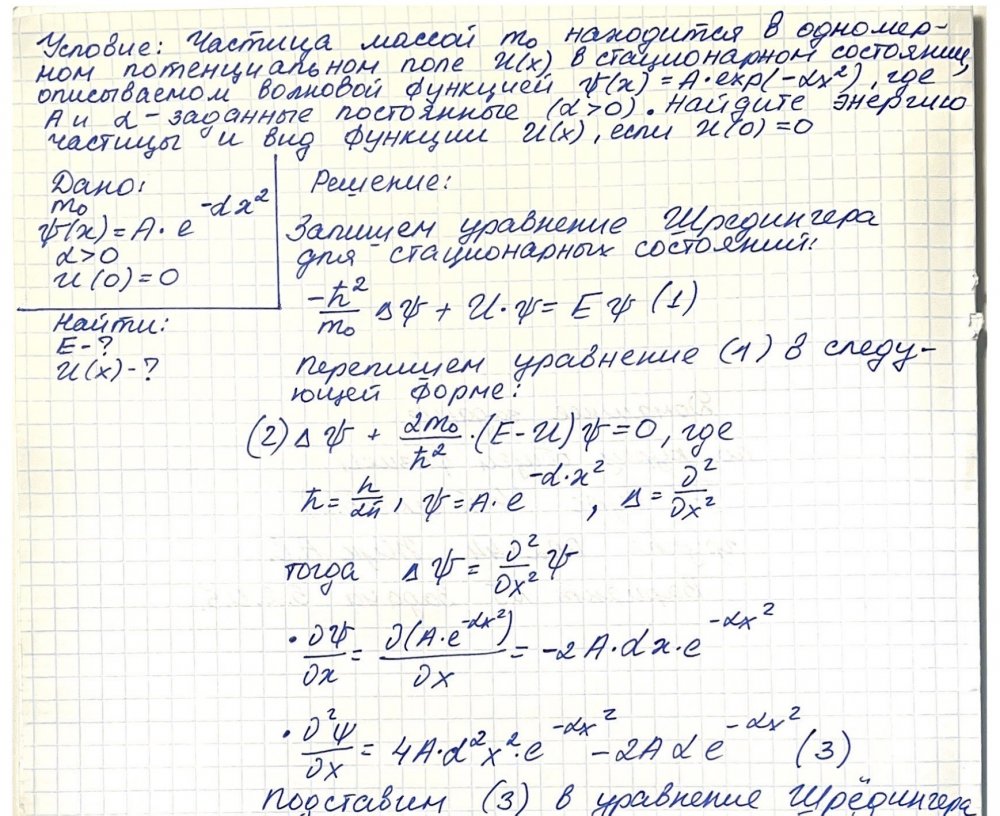 Условие: Частица массой m₀ находится в одномер-
ном потенциальном поле U(x) в стационарном состоянии,
описываемом волновой функцией ψ(x) = A·exp(-αx²), где
A и α - заданные постоянные (α>0). Найдите энергию
частицы и вид функции U(x), если U(0)=0
Дано:
m₀
ψ(x) = A·e^(-αx²)
α>0
U(0)=0
Найти:
E-?
U(x)-?
Решение:
Запишем уравнение Шредингера
для стационарных состояний:
-ħ²/m₀ Δψ + U·ψ = Eψ (1)
Перепишем уравнение (1) в следу-
ющей форме:
(2) Δψ + 2m₀/ħ² ·(E-U)ψ=0, где
ħ = h/2π, ψ = A·e^(-α·x²), Δ = ∂²/∂x²
тогда Δψ = ∂²/∂x² ψ
• ∂ψ/∂x = ∂(A·e^(-αx²))/∂x = -2A·αx·e^(-αx²)
• ∂²ψ/∂x = 4A·α²x²·e^(-αx²) - 2Aαe^(-αx²) (3)
Подставим (3) в уравнение Шрёдингера